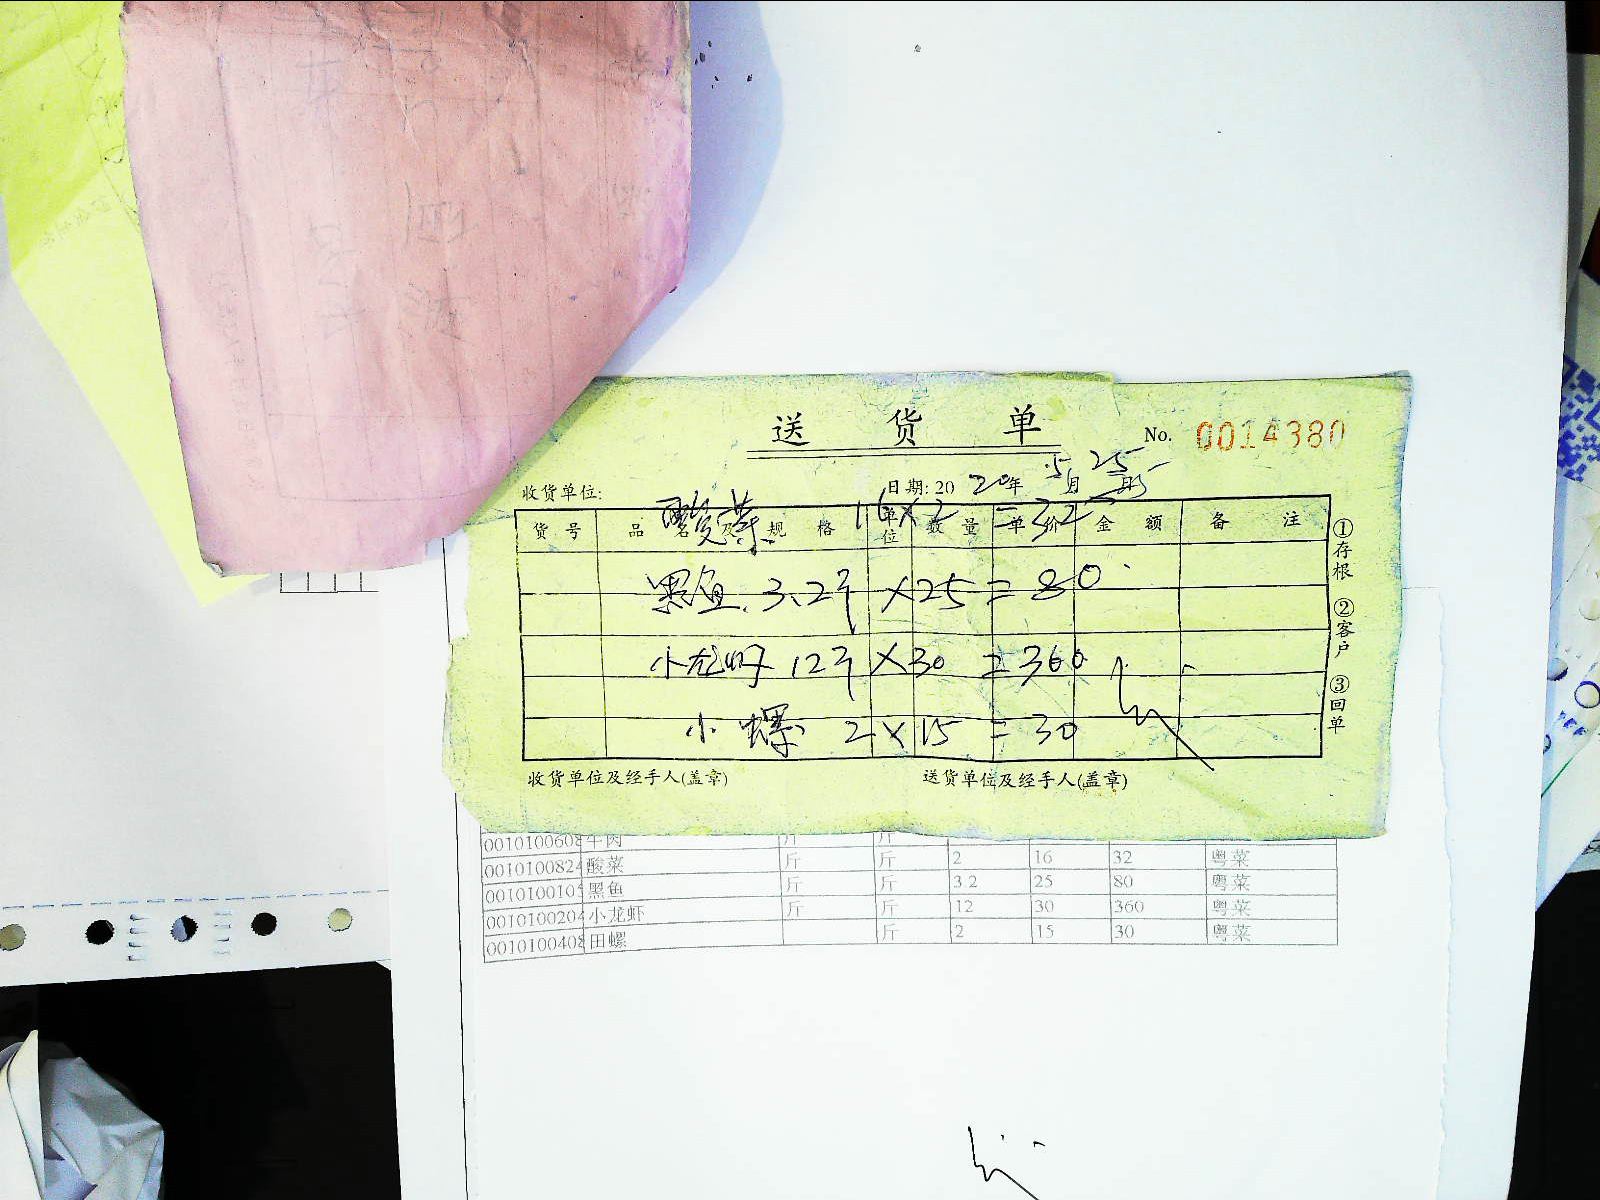 送 货 单
No. 0014380
收货单位: 日期: 2020年 5月 25日
货号 品名及规格 单位 数量 单价 金额 备注
酸菜 16×2=32
黑鱼 3.2斤 ×25=80
小龙虾 12斤 ×30=360
小螺 2×15=30
收货单位及经手人(盖章) 送货单位及经手人(盖章)
①存根 ②客户 ③回单
牛肉 斤 斤
酸菜 斤 斤 2 16 32 粤菜
黑鱼 斤 斤 3.2 25 80 粤菜
小龙虾 斤 斤 12 30 360 粤菜
田螺 斤 2 15 30 粤菜